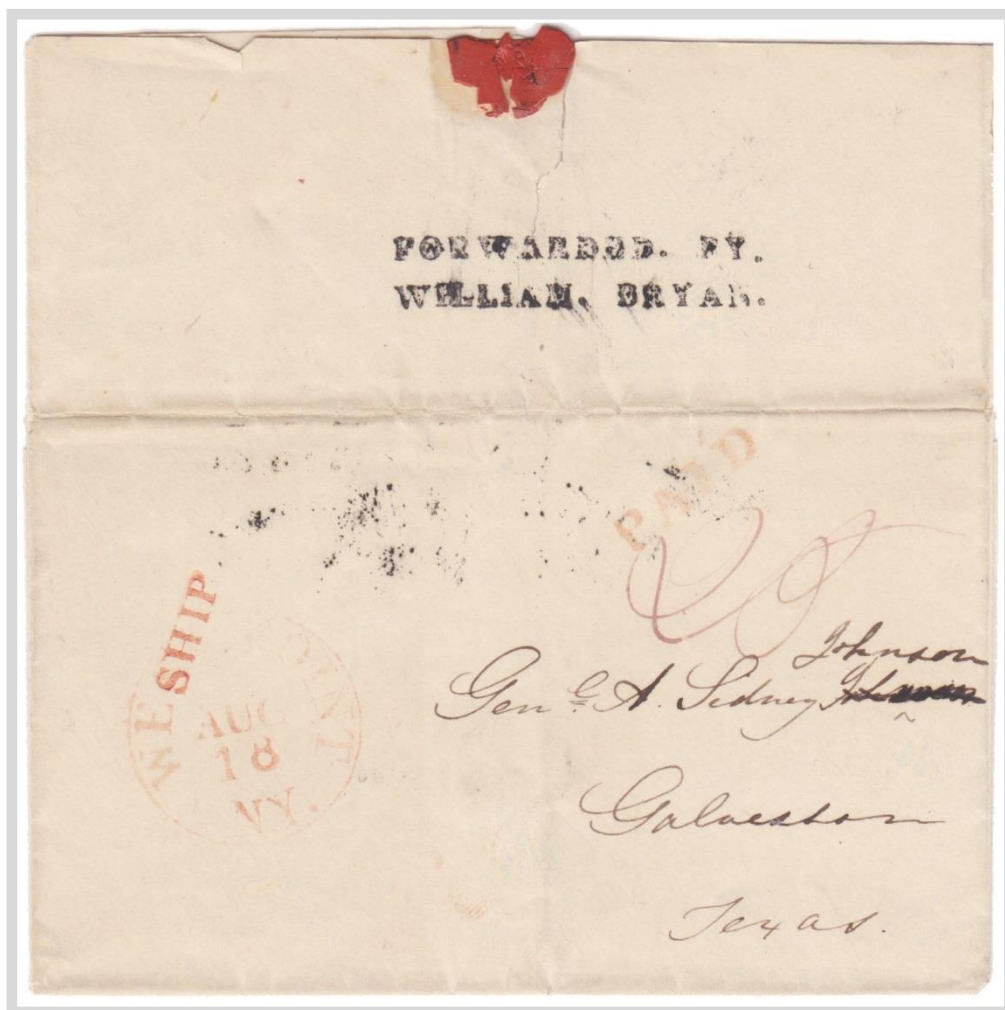 FORWARDED. BY.
WILLIAM. BRYAN.
PAID
25
SHIP
WEST POINT
AUG
18
NY.
Johnson
Genl. A. Sidney
Galveston
Texas.